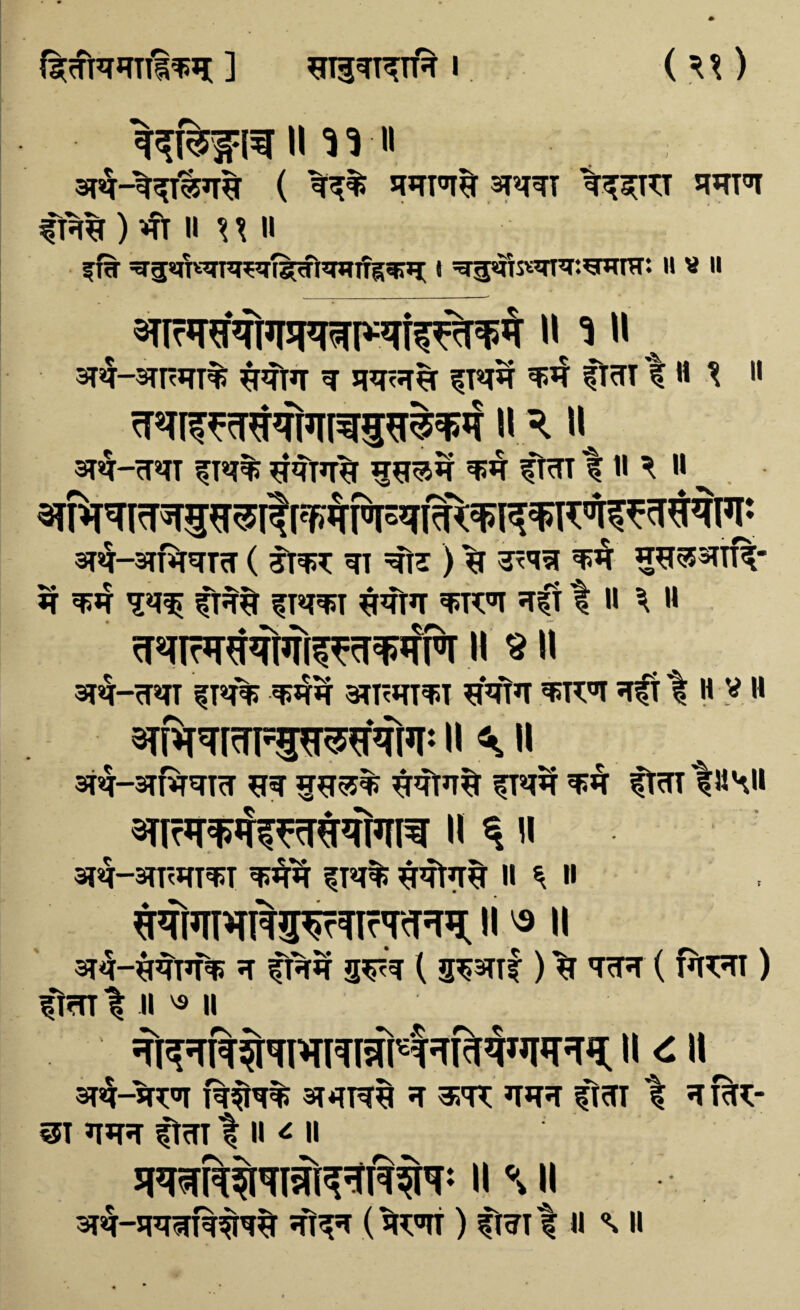 द्वितीयमाह्निकम् ] ( २१ )
वेदलिङ्गाच्च ॥ ११ ॥
अर्थ-वेदलिङ्गसे ( वेदके प्रमाणसे अथवा वेदद्वारा प्रमाण
होनेसे ) भी ॥ ११ ॥
इति चतुर्थाध्यायस्यद्वितीयमाह्निकम् । चतुर्थोऽध्यायःसमाप्तः ॥ ४ ॥
आत्मसंयोगप्रयत्नाभ्यांहस्तेकर्म ॥ १ ॥
अर्थ-आत्माके संयोग व प्रयत्नसे हाथमें कर्म होता है ॥ १ ॥
तथाहस्तसंयोगाच्चमुसलेकर्म ॥ २ ॥
अर्थ-तथा हाथके संयोगसे मुसलमें कर्म होता है ॥ २ ॥
अभिघातजेमुसलादौकर्मणिव्यतिरेकादकारणंहस्तसंयोगः
अर्थ-अभिघात ( ठोकर या चोट ) से उत्पन्न कर्म मुसलआदि-
में कर्म पृथक् होनेसे हाथका संयोग कारण नहीं है ॥ ३ ॥
तथात्मसंयोगोहस्तकर्मणि ॥ ४ ॥
अर्थ-तथा हाथके कर्ममें आत्माका संयोग कारण नहीं है ॥ ४ ॥
अभिघातान्मुसलसंयोगः ॥ ५ ॥
अर्थ-अभिघात एवं मुसलके संयोगसे हाथमें कर्म होता है॥५॥
आत्मकर्महस्तसंयोगाच्च ॥ ६ ॥
अर्थ-आत्माका कर्ममें हाथके संयोगसे ॥ ६ ॥
संयोगाभावेगुरुत्वात्पतनम् ॥ ७ ॥
अर्थ-संयोगके न होनेमें गुरुत्व ( गुरुआई ) से पतन ( गिरना )
होता है ॥ ७ ॥
नोदनविशेषाभावान्नोर्ध्वंनतिर्यग्गमनम् ॥ ८ ॥
अर्थ-प्रेरण विशेषके अभावसे न ऊपर गमन होता है न तिर-
छा गमन होता है ॥ ८ ॥
प्रयत्नविशेषान्नोदनविशेषः ॥ ९ ॥
अर्थ-प्रयत्नविशेषसे नोदन ( प्रेरणा ) होता है ॥ ९ ॥